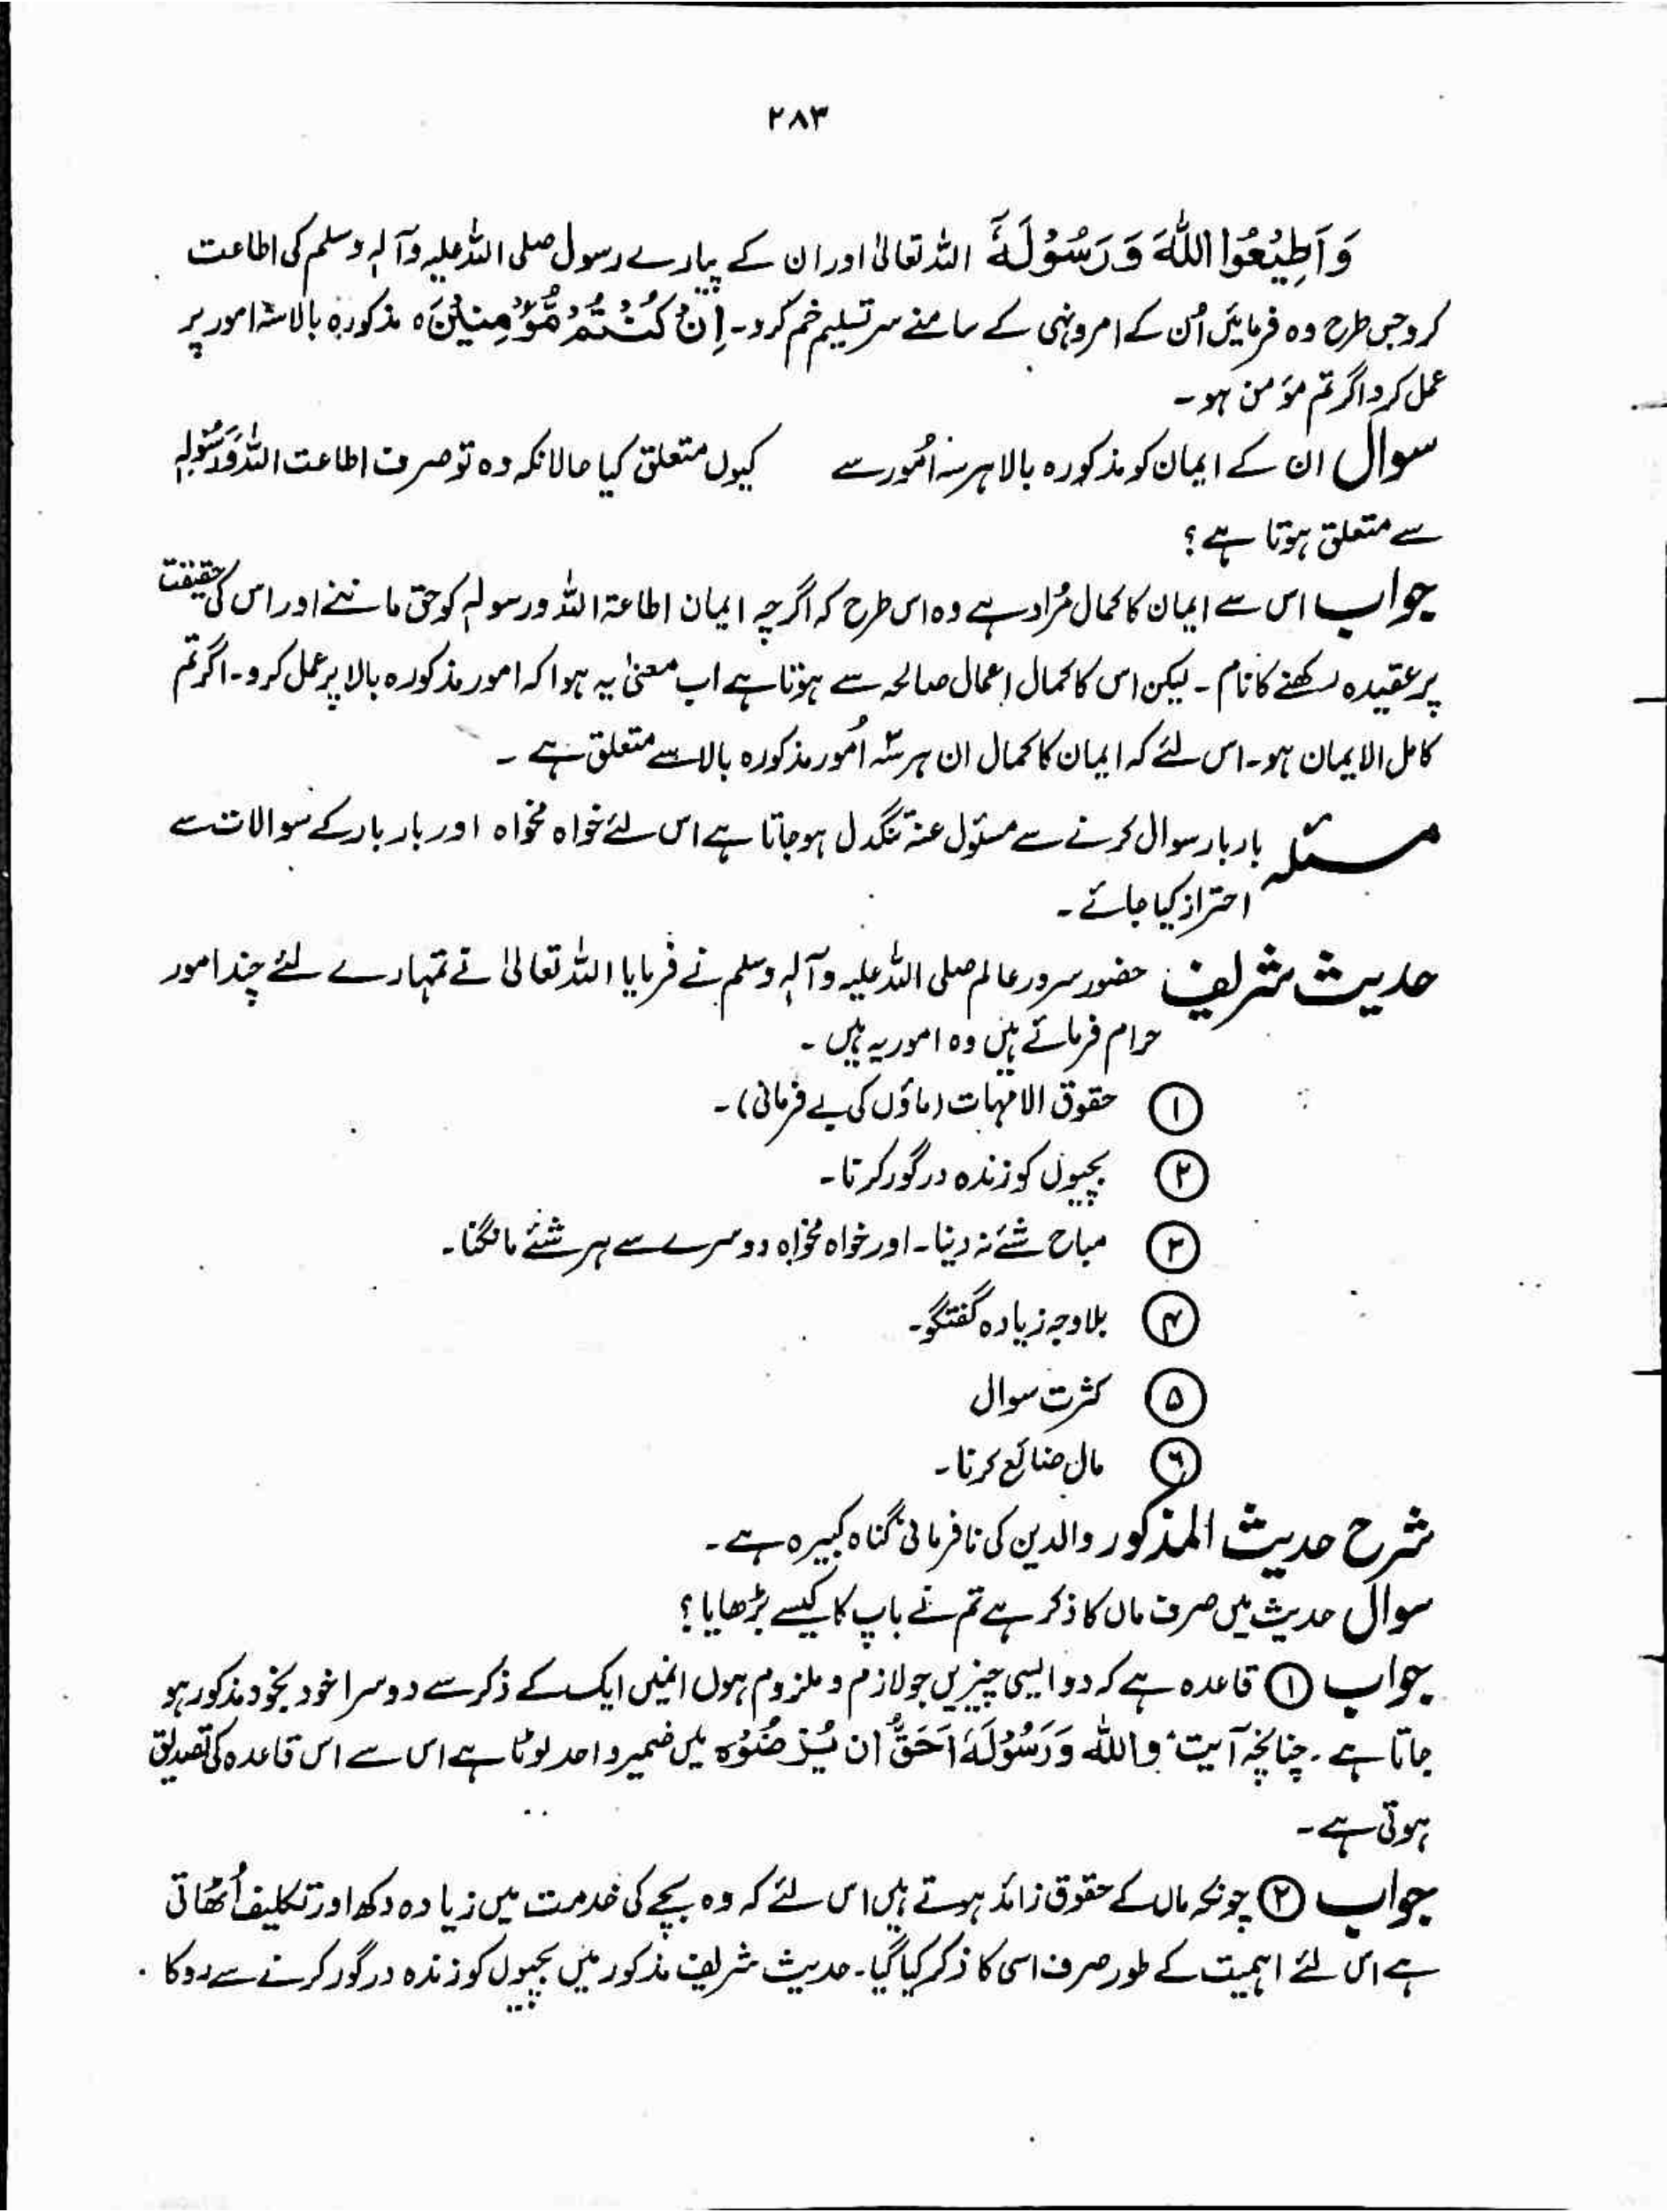 ۲۸۳
وَاَطِیْعُوا اللّٰهَ وَرَسُوْلَهٗ اللہ تعالیٰ اور ان کے پیارے رسول صلی اللہ علیہ وآلہٖ وسلم کی اطاعت
کرو جس طرح وہ فرمائیں اُن کے امر و نہی کے سامنے سر تسلیم خم کرو۔ اِنْ كُنْتُمْ مُّؤْمِنِیْنَ ہ مذکورہ بالا سہ امور پر
عمل کرو اگر تم مؤمن ہو۔
سوال ان کے ایمان کو مذکورہ بالا ہر سہ اُمور سے کیوں متعلق کیا حالانکہ وہ تو صرف اطاعت اللہ وَرَسُولِہٖ
سے متعلق ہوتا ہے؟
جواب اس سے ایمان کا کمال مُراد ہے وہ اس طرح کہ اگرچہ ایمان اطاعۃ اللہ ورسولہٖ کو حق ماننے اور اس کی حقیقت
پر عقیدہ رکھنے کا نام ۔ لیکن اس کا کمال اعمال صالحہ سے ہوتا ہے اب معنیٰ یہ ہوا کہ امور مذکورہ بالا پر عمل کرو ۔ اگر تم
کامل الایمان ہو ۔ اس لئے کہ ایمان کا کمال ان ہر سہ اُمور مذکورہ بالا سے متعلق ہے ۔
مسئلہ بار بار سوال کرنے سے مسئول عنہ تنگدل ہو جاتا ہے اس لئے خواہ مخواہ اور بار بار کے سوالات سے
احتراز کیا جائے ۔
حدیث شریف حضور سرور عالم صلی اللہ علیہ وآلہٖ وسلم نے فرمایا اللہ تعالیٰ نے تمہارے لئے چند امور
حرام فرمائے ہیں وہ امور یہ ہیں ۔
① حقوق الامہات (ماؤں کی بے فرمانی) ۔
② بچیوں کو زندہ درگور کرنا ۔
③ مباح شئے نہ دینا ۔ اور خواہ مخواہ دوسرے سے ہر شئے مانگنا ۔
④ بلا وجہ زیادہ گفتگو ۔
⑤ کثرت سوال
⑥ مال ضائع کرنا ۔
شرح حدیث المذکور والدین کی نافرمانی گناہ کبیرہ ہے ۔
سوال حدیث میں صرف ماں کا ذکر ہے تم نے باپ کا کیسے بڑھایا ؟
جواب ① قاعدہ ہے کہ دو ایسی چیزیں جو لازم و ملزوم ہوں انمیں ایک کے ذکر سے دوسرا خود بخود مذکور ہو
جاتا ہے ۔ چنانچہ آیت والله وَرَسُوْلَهٗ اَحَقُّ ان یُّرْضُوْه میں ضمیر واحد لوٹا ہے اس سے اس قاعدہ کی تصدیق
ہوتی ہے ۔
جواب ② چونکہ ماں کے حقوق زائد ہوتے ہیں اس لئے کہ وہ بچے کی خدمت میں زیادہ دکھ اور تکلیف اُٹھاتی
ہے اس لئے اہمیت کے طور صرف اسی کا ذکر کیا گیا ۔ حدیث شریف مذکور میں بچیوں کو زندہ درگور کرنے سے روکا